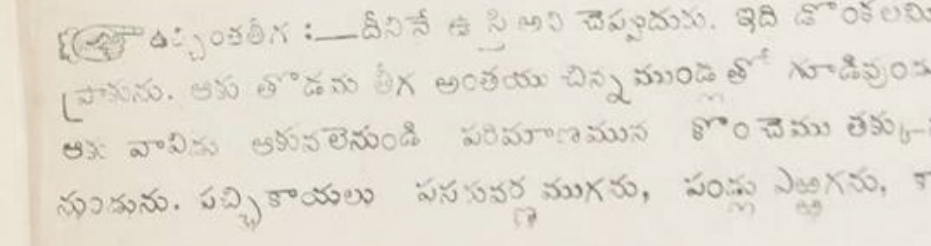 ఉచ్చింతతీగ :— దీనినే ఉస్తి అని చెప్పుదురు. ఇది డొంకలమీ
ప్రాకును. ఆకు తొడను తీగ అంతయు చిన్న ముండ్లతో గూడివుండు
ఆకు వావిలి ఆకువలెనుండి పరిమాణమున కొంచెము తక్కు-
నుండును. పచ్చికాయలు పసరువర్ణముగను, పండ్లు ఎఱ్ఱగను,